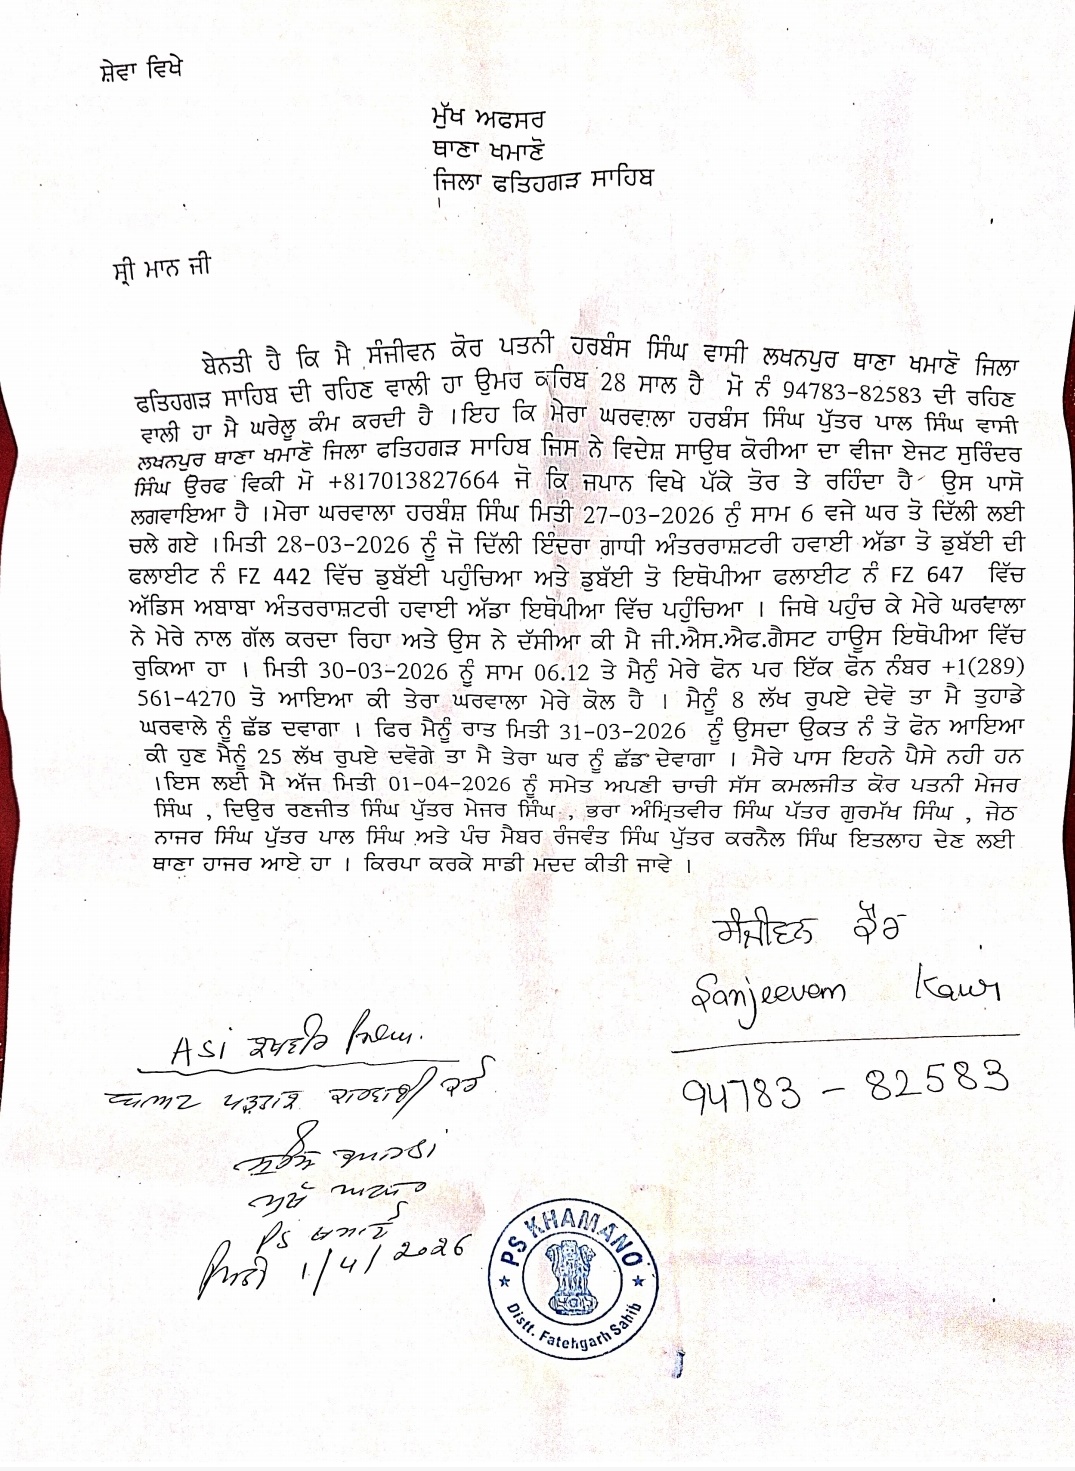 ਸ਼ੇਵਾ ਵਿਖੇ
ਮੁੱਖ ਅਫਸਰ
ਥਾਣਾ ਖਮਾਣੋ
ਜਿਲਾ ਫਤਿਹਗੜ ਸਾਹਿਬ
ਸ੍ਰੀ ਮਾਨ ਜੀ
ਬੇਨਤੀ ਹੈ ਕਿ ਮੈ ਸੰਜੀਵਨ ਕੋਰ ਪਤਨੀ ਹਰਬੰਸ ਸਿੰਘ ਵਾਸੀ ਲਖਨਪੁਰ ਥਾਣਾ ਖਮਾਣੋ ਜਿਲਾ
ਫਤਿਹਗੜ ਸਾਹਿਬ ਦੀ ਰਹਿਣ ਵਾਲੀ ਹਾ ਉਮਰ ਕਰਿਬ 28 ਸਾਲ ਹੈ ਮੋ ਨੰ 94783-82583 ਦੀ ਰਹਿਣ
ਵਾਲੀ ਹਾ ਮੈ ਘਰੇਲੂ ਕੰਮ ਕਰਦੀ ਹੈ ।ਇਹ ਕਿ ਮੇਰਾ ਘਰਵਾਲਾ ਹਰਬੰਸ ਸਿੰਘ ਪੁੱਤਰ ਪਾਲ ਸਿੰਘ ਵਾਸੀ
ਲਖਨਪੁਰ ਥਾਣਾ ਖਮਾਣੋ ਜਿਲਾ ਫਤਿਹਗੜ ਸਾਹਿਬ ਜਿਸ ਨੇ ਵਿਦੇਸ਼ ਸਾਉਥ ਕੋਰੀਆ ਦਾ ਵੀਜਾ ਏਜਟ ਸੁਰਿੰਦਰ
ਸਿੰਘ ਉਰਫ ਵਿਕੀ ਮੋ +817013827664 ਜੋ ਕਿ ਜਪਾਨ ਵਿਖੇ ਪੱਕੇ ਤੋਰ ਤੇ ਰਹਿੰਦਾ ਹੈ ਉਸ ਪਾਸੋ
ਲਗਵਾਇਆ ਹੈ ।ਮੇਰਾ ਘਰਵਾਲਾ ਹਰਬੰਸ਼ ਸਿੰਘ ਮਿਤੀ 27-03-2026 ਨੂੰ ਸਾਮ 6 ਵਜੇ ਘਰ ਤੋ ਦਿੱਲੀ ਲਈ
ਚਲੇ ਗਏ ।ਮਿਤੀ 28-03-2026 ਨੂੰ ਜੋ ਦਿੱਲੀ ਇੰਦਰਾ ਗਾਧੀ ਅੰਤਰਰਾਸ਼ਟਰੀ ਹਵਾਈ ਅੱਡਾ ਤੋ ਡੁਬੱਈ ਦੀ
ਫਲਾਈਟ ਨੰ FZ 442 ਵਿੱਚ ਡੁਬੱਈ ਪਹੁੰਚਿਆ ਅਤੇ ਡੁਬੱਈ ਤੋ ਇਥੋਪੀਆ ਫਲਾਈਟ ਨੰ FZ 647 ਵਿੱਚ
ਅੱਡਿਸ ਅਬਾਬਾ ਅੰਤਰਰਾਸ਼ਟਰੀ ਹਵਾਈ ਅੱਡਾ ਇਥੋਪੀਆ ਵਿੱਚ ਪਹੁੰਚਿਆ । ਜਿਥੇ ਪਹੁੰਚ ਕੇ ਮੇਰੇ ਘਰਵਾਲਾ
ਨੇ ਮੇਰੇ ਨਾਲ ਗੱਲ ਕਰਦਾ ਰਿਹਾ ਅਤੇ ਉਸ ਨੇ ਦੱਸੀਆ ਕੀ ਮੈ ਜੀ.ਐਸ.ਐਫ.ਗੈਸਟ ਹਾਊਸ ਇਥੋਪੀਆ ਵਿੱਚ
ਰੁਕਿਆ ਹਾ । ਮਿਤੀ 30-03-2026 ਨੂੰ ਸਾਮ 06.12 ਤੇ ਮੈਨੂੰ ਮੇਰੇ ਫੋਨ ਪਰ ਇੱਕ ਫੋਨ ਨੰਬਰ +1(289)
561-4270 ਤੋ ਆਇਆ ਕੀ ਤੇਰਾ ਘਰਵਾਲਾ ਮੇਰੇ ਕੋਲ ਹੈ । ਮੈਨੂੰ 8 ਲੱਖ ਰੁਪਏ ਦੇਵੋ ਤਾ ਮੈ ਤੁਹਾਡੇ
ਘਰਵਾਲੇ ਨੂੰ ਛੱਡ ਦਵਾਗਾ । ਫਿਰ ਮੈਨੂੰ ਰਾਤ ਮਿਤੀ 31-03-2026 ਨੂੰ ਉਸਦਾ ਉਕਤ ਨੰ ਤੋ ਫੋਨ ਆਇਆ
ਕੀ ਹੁਣ ਮੈਨੂੰ 25 ਲੱਖ ਰੁਪਏ ਦਵੋਗੇ ਤਾ ਮੈ ਤੇਰਾ ਘਰ ਨੂੰ ਛੱਡ ਦੇਵਾਗਾ । ਮੈਰੇ ਪਾਸ ਇਹਨੇ ਪੈਸੇ ਨਹੀ ਹਨ
।ਇਸ ਲਈ ਮੈ ਅੱਜ ਮਿਤੀ 01-04-2026 ਨੂੰ ਸਮੇਤ ਅਪਣੀ ਚਾਚੀ ਸੱਸ ਕਮਲਜੀਤ ਕੋਰ ਪਤਨੀ ਮੇਜਰ
ਸਿੰਘ , ਦਿਉਰ ਰਣਜੀਤ ਸਿੰਘ ਪੁੱਤਰ ਮੇਜਰ ਸਿੰਘ , ਭਰਾ ਅੰਮ੍ਰਿਤਵੀਰ ਸਿੰਘ ਪੱਤਰ ਗੁਰਮੱਖ ਸਿੰਘ , ਜੇਠ
ਨਾਜਰ ਸਿੰਘ ਪੁੱਤਰ ਪਾਲ ਸਿੰਘ ਅਤੇ ਪੰਚ ਮੈਬਰ ਰੰਜਵੰਤ ਸਿੰਘ ਪੁੱਤਰ ਕਰਨੈਲ ਸਿੰਘ ਇਤਲਾਹ ਦੇਣ ਲਈ
ਥਾਣਾ ਹਾਜਰ ਆਏ ਹਾ । ਕਿਰਪਾ ਕਰਕੇ ਸਾਡੀ ਮਦਦ ਕੀਤੀ ਜਾਵੇ ।
ਸੰਜੀਵਨ ਕੌਰ
Sanjeevam Kaur
94783 - 82583
ASi
ਮੁੱਖ ਅਫਸਰ
PS ਖਮਾਣੋ
ਮਿਤੀ 1/4/2026
PS KHAMANO
Distt. Fatehgarh Sahib